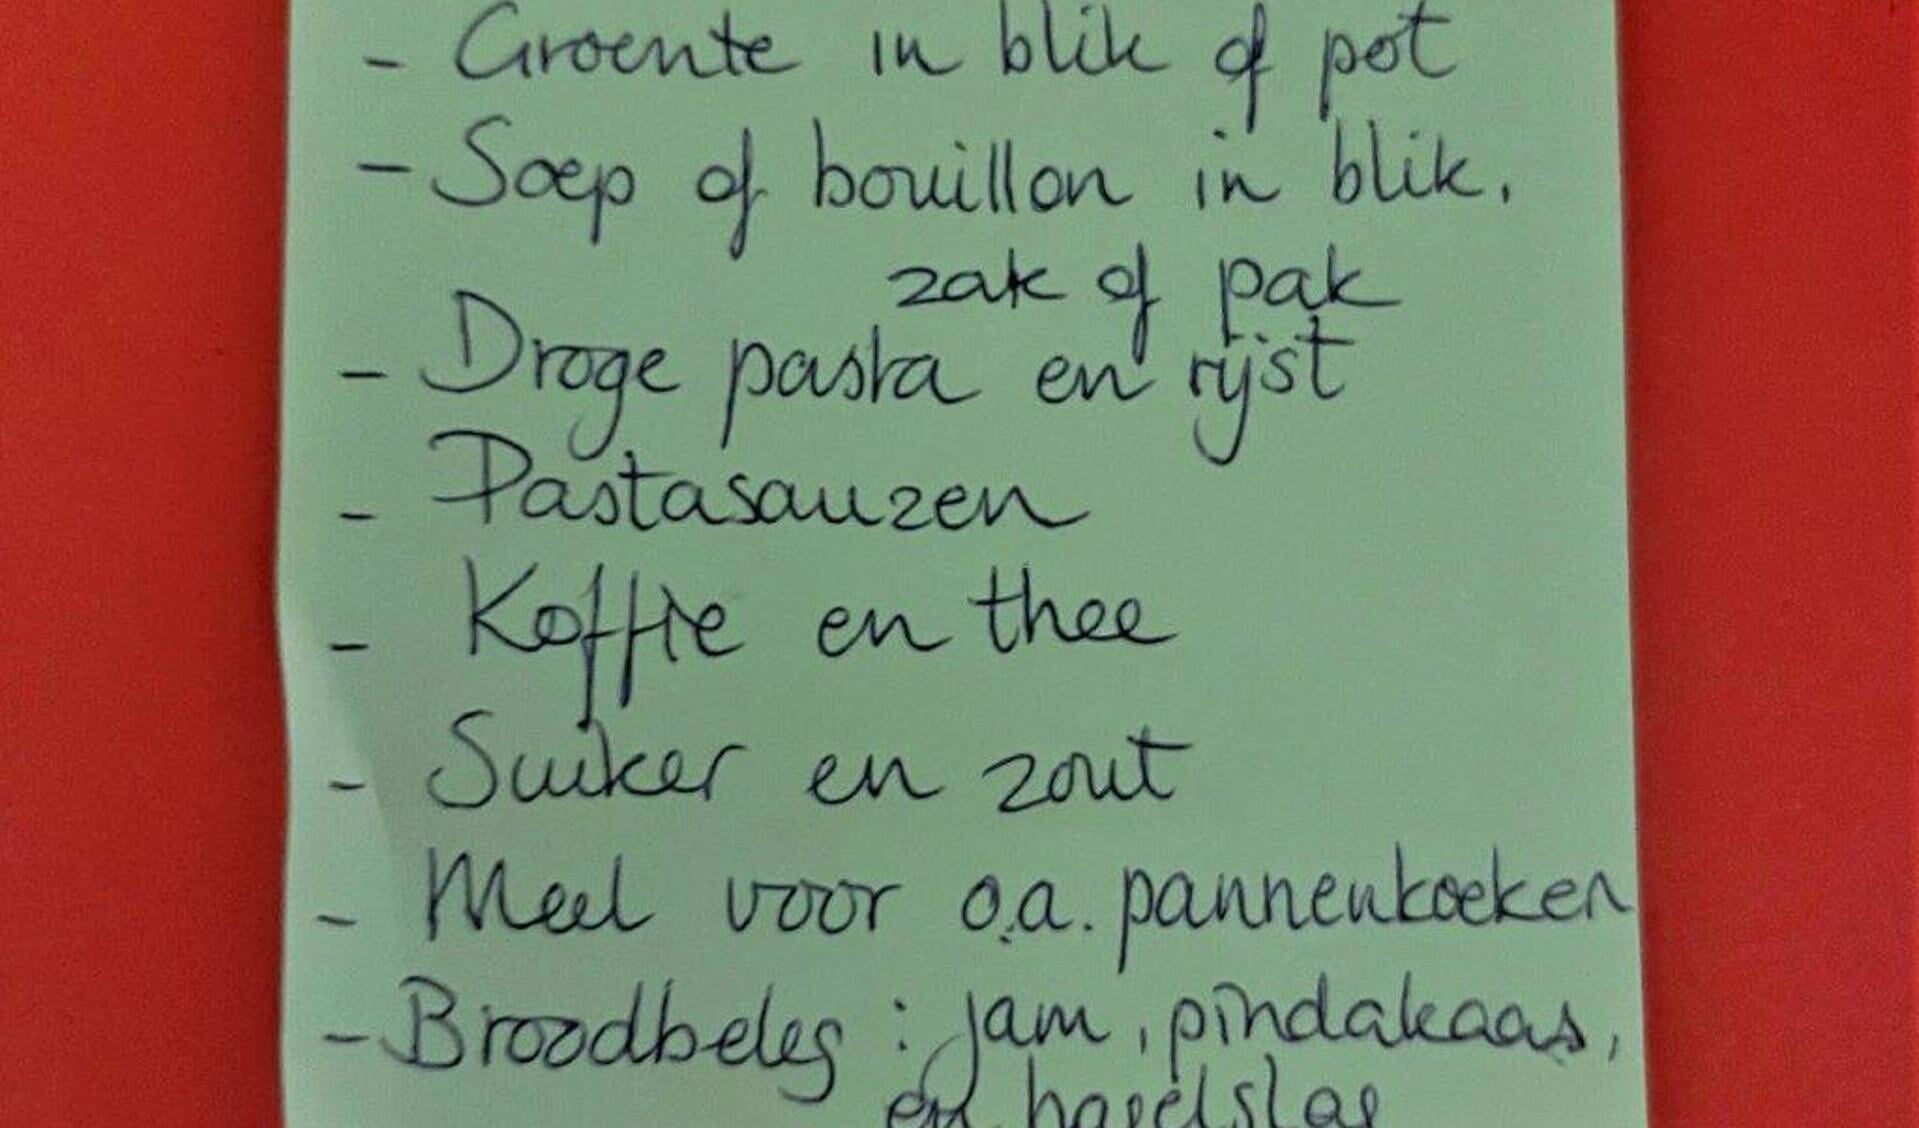 - Groente in blik of pot
- Soep of bouillon in blik,
zak of pak
- Droge pasta en rijst
- Pastasauzen
- Koffie en thee
- Suiker en zout
- Meel voor o.a. pannenkoeken
- Broodbeleg : jam, pindakaas,
en hagelslag